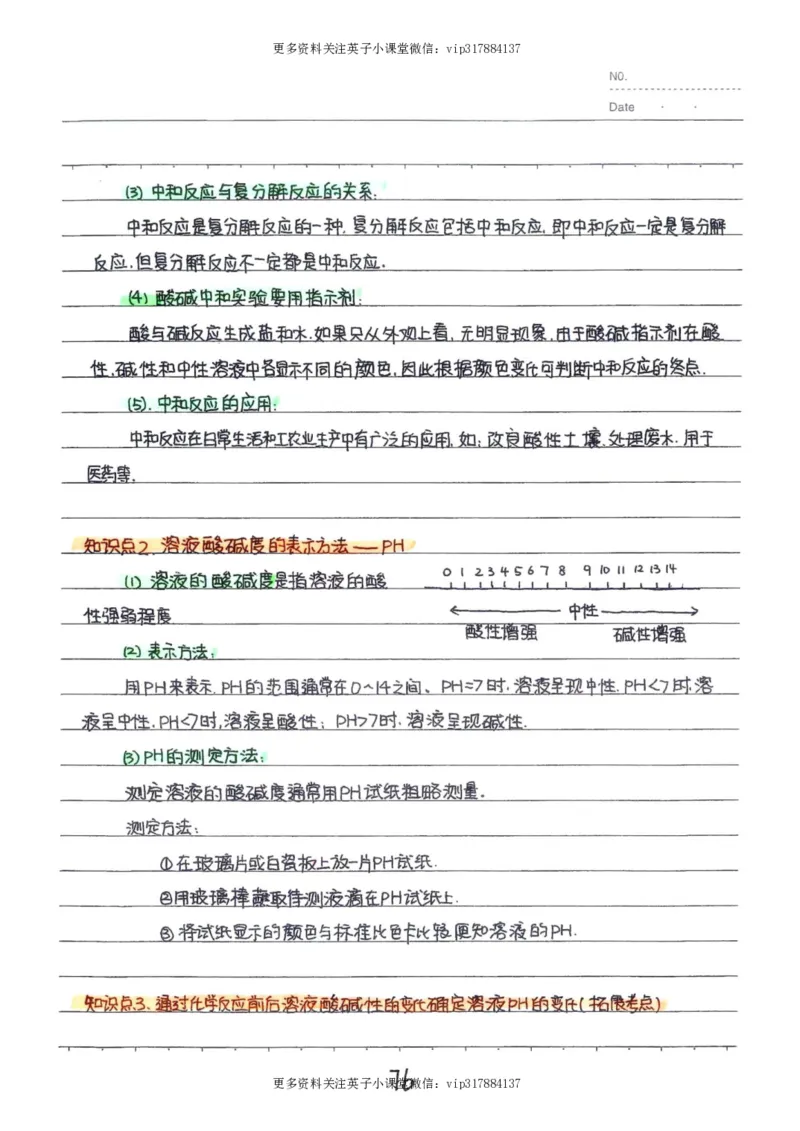 更多资料关注英子小课堂微信：vip317884137
NO.
Date
(3) 中和反应与复分解反应的关系:
中和反应是复分解反应的一种, 复分解反应包括中和反应, 即中和反应一定是复分解
反应.但复分解反应不一定都是中和反应.
(4) 酸碱中和实验要用指示剂:
酸与碱反应生成盐和水.如果只从外观上看, 无明显现象,由于酸碱指示剂在酸
性,碱性和中性溶液中各显示不同的颜色,因此根据颜色变化可判断中和反应的终点.
(5). 中和反应的应用:
中和反应在日常生活和工农业生产中有广泛的应用, 如: 改良酸性土壤,处理废水.用于
医药等.
知识点2. 溶液酸碱度的表示方法——PH
(1) 溶液的酸碱度是指溶液的酸
0 1 2 3 4 5 6 7 8 9 10 11 12 13 14
性强弱程度
中性
酸性增强 碱性增强
(2) 表示方法:
用PH来表示. PH的范围通常在0~14之间、PH=7时.溶液呈现中性. PH<7时,溶
液呈中性. PH<7时,溶液呈酸性; PH>7时.溶液呈现碱性.
(3) PH的测定方法:
测定溶液的酸碱度通常用PH试纸粗略测量.
测定方法:
①在玻璃片或白瓷板上放一片PH试纸.
②用玻璃棒蘸取待测液滴在PH试纸上.
③将试纸显示的颜色与标准比色卡比较便知溶液的PH.
知识点3. 通过化学反应前后溶液酸碱性的变化确定溶液PH的变化(拓展考点)
76
更多资料关注英子小课堂微信：vip317884137